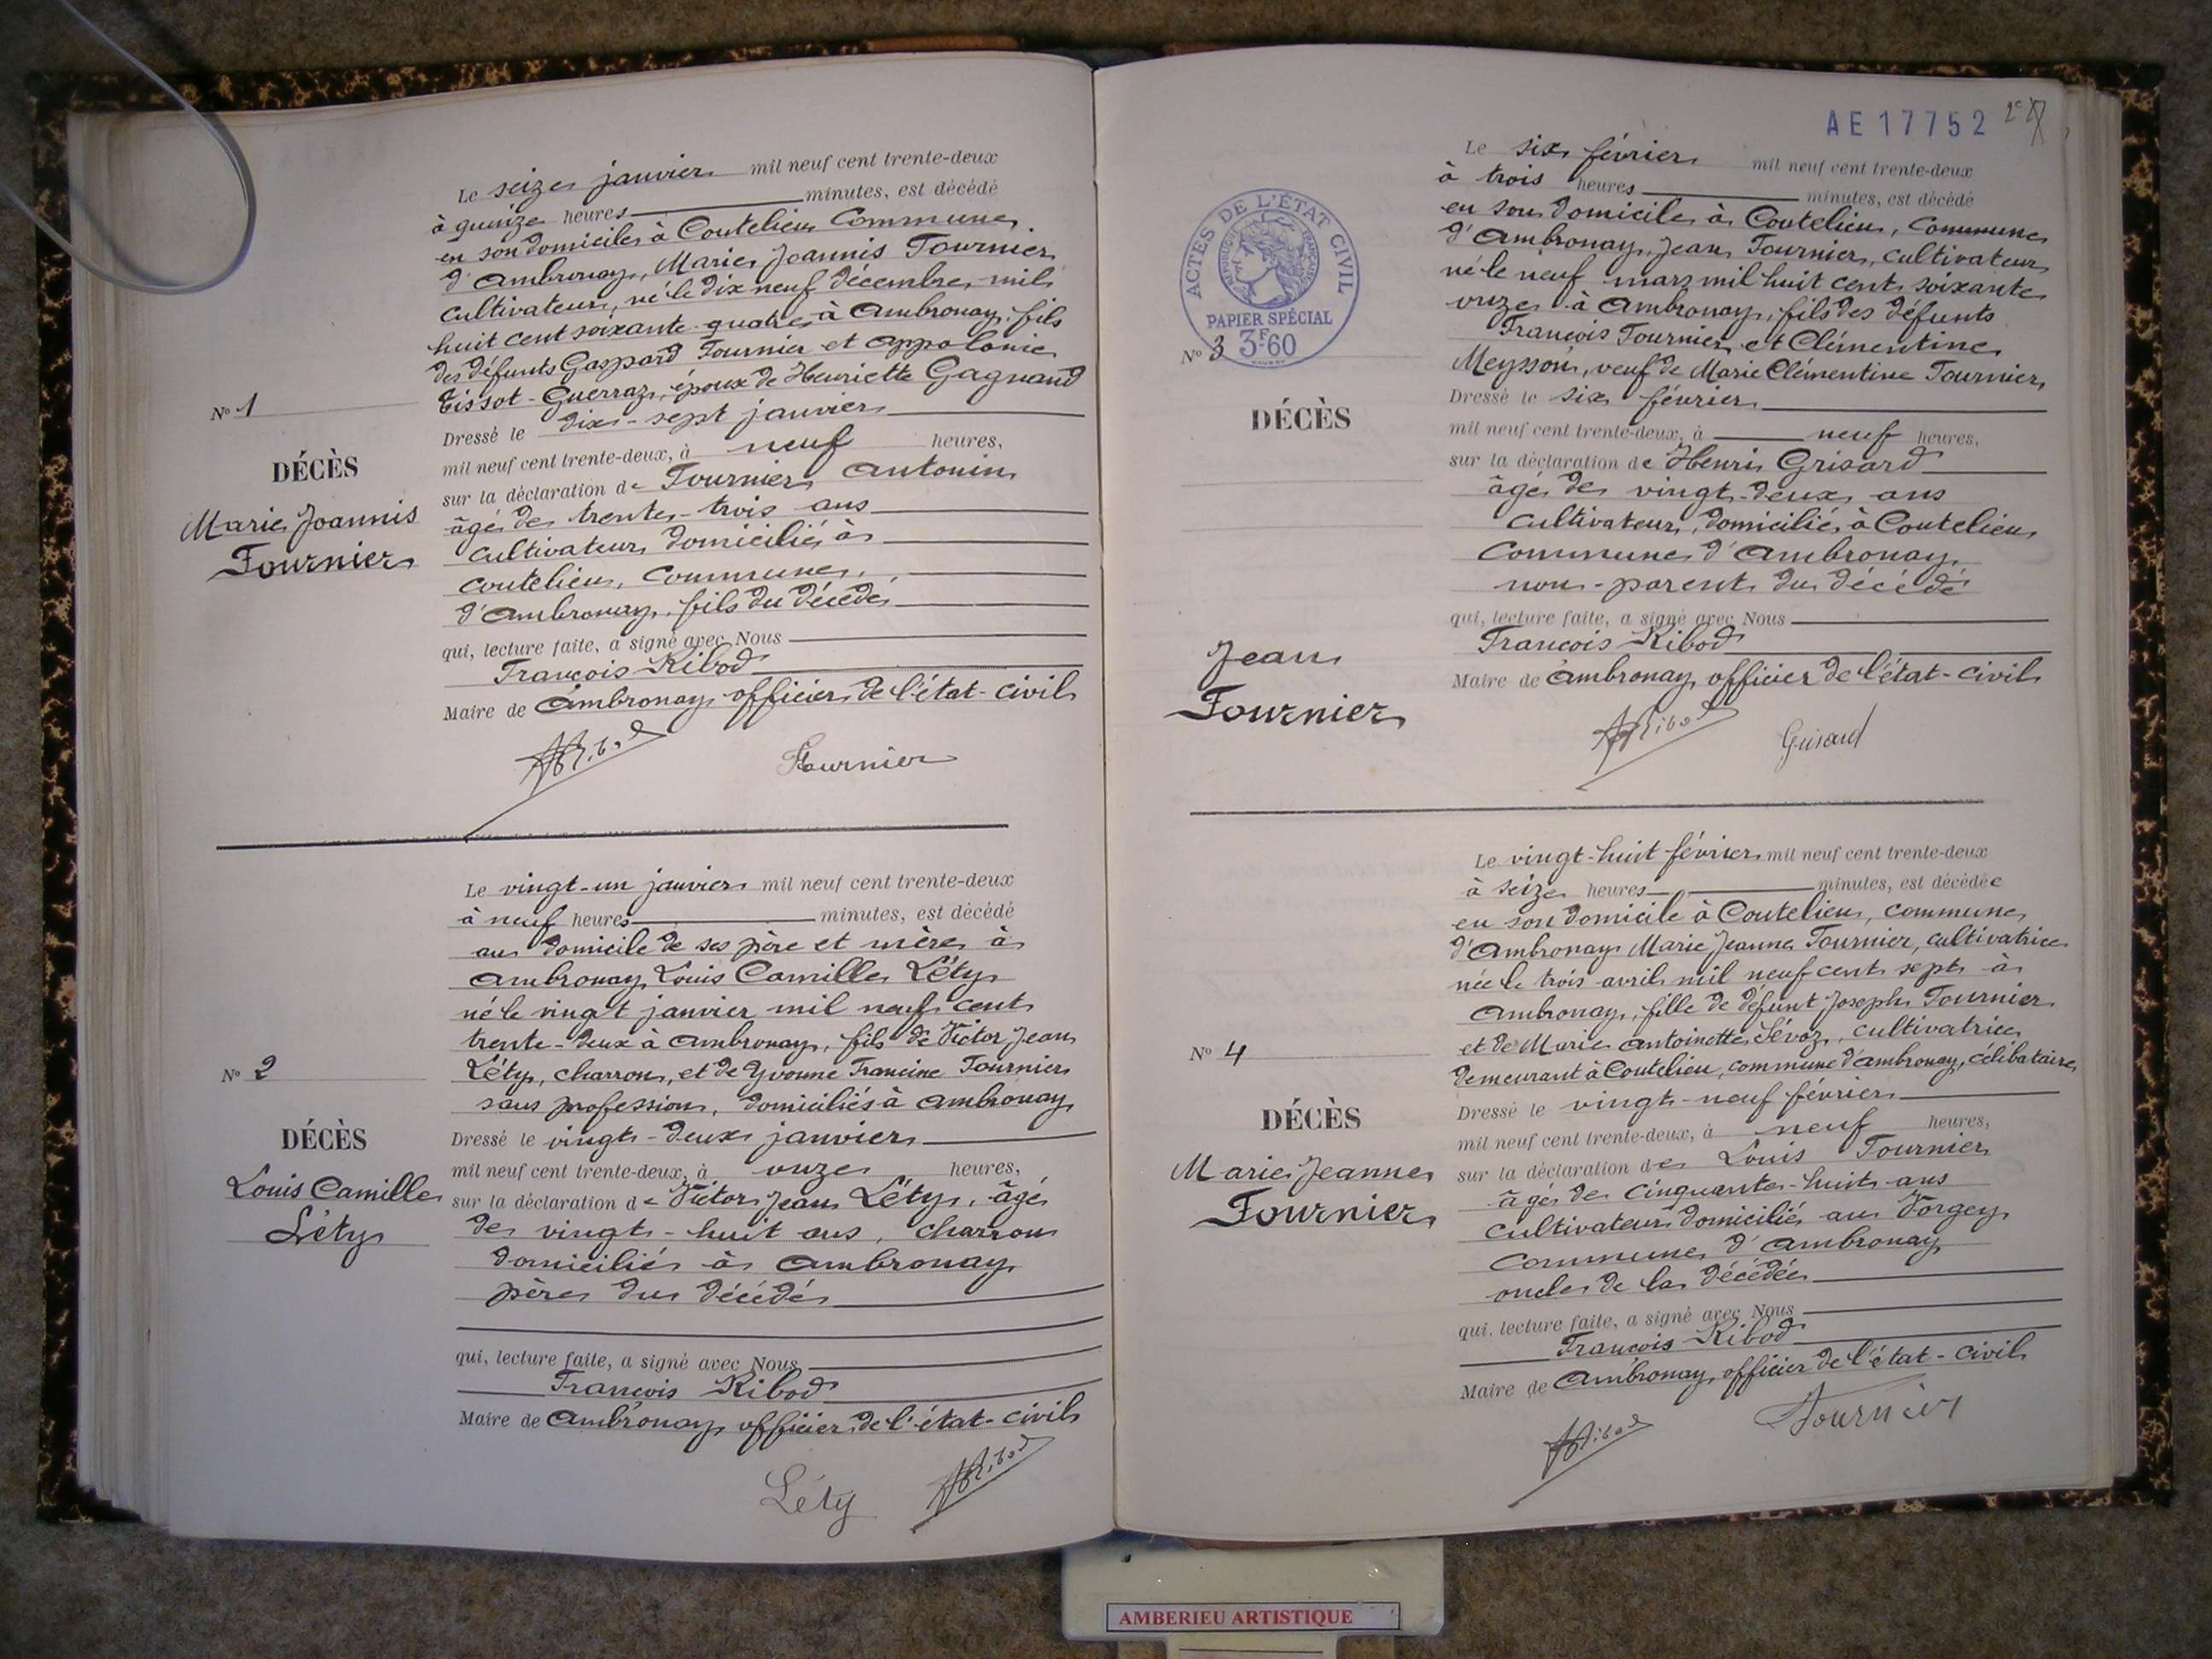 Le seize janvier mil neuf cent trente-deux
à quinze heures minutes, est décédé
en son domicile à Coutelieu Commune
d'Ambronay, Marie Joannis Fournier
cultivateur, né le dix neuf décembre mil
huit cent soixante-quatre à Ambronay, fils
des défunts Gaspard Fournier et Appolonie
Tissot-Guerraz, époux de Henriette Gagnand
Nº 1
Dressé le dix-sept janvier
mil neuf cent trente-deux, à neuf heures,
DÉCÈS
sur la déclaration de Fournier Antonin
Marie Joannis
âgé de trente-trois ans
Fournier
cultivateur domicilié à
Coutelieu, Commune
d'Ambronay, fils du décédé
qui, lecture faite, a signé avec Nous
François Ribod
Maire de Ambronay officier de l'état-civil
Ribod
Fournier
Le vingt-un janvier mil neuf cent trente-deux
à neuf heures minutes, est décédé
au domicile de ses père et mère à
Ambronay Louis Camille Léty
né le vingt janvier mil neuf cent
trente-deux à Ambronay, fils de Victor Jean
Nº 2
Léty, charron, et de Yvonne Francine Fournier
sans profession, domiciliés à Ambronay
DÉCÈS
Dressé le vingt-deux janvier
mil neuf cent trente-deux, à onze heures,
Louis Camille
sur la déclaration de Victor Jean Léty, âgé
Léty
de vingt-huit ans, charron
domicilié à Ambronay
père du décédé
qui, lecture faite, a signé avec Nous
François Ribod
Maire de Ambronay officier de l'état-civil
Léty
Ribod
AE 17752
Le six février mil neuf cent trente-deux
à trois heures minutes, est décédé
en son domicile à Coutelieu, Commune
d'Ambronay, Jean Fournier, cultivateur
né le neuf mars mil huit cent soixante
onze à Ambronay, fils des défunts
François Fournier et Clémentine
ACTES DE L'ÉTAT CIVIL
RÉPUBLIQUE FRANÇAISE
PAPIER SPÉCIAL
3F60
Nº 3
Meysson, veuf de Marie Clémentine Fournier
Dressé le six février
DÉCÈS
mil neuf cent trente-deux, à neuf heures,
sur la déclaration de Henri Grisard
âgé de vingt-deux ans
cultivateur, domicilié à Coutelieu
Commune d'Ambronay
non-parent du décédé
qui, lecture faite, a signé avec Nous
Jean
Fournier
François Ribod
Maire de Ambronay officier de l'état-civil
Ribod
Grisard
Le vingt-huit février mil neuf cent trente-deux
à seize heures minutes, est décédée
en son domicile à Coutelieu, commune
d'Ambronay Marie Jeanne Fournier, cultivatrice
née le trois avril mil neuf cent sept à
Ambronay, fille de défunt Joseph Fournier
et de Marie Antoinette Sévoz, cultivatrice
Nº 4
demeurant à Coutelieu, commune d'Ambronay, célibataire
Dressé le vingt-neuf février
DÉCÈS
mil neuf cent trente-deux, à neuf heures,
Marie Jeanne
sur la déclaration de Louis Fournier
Fournier
âgé de cinquante-huit ans
cultivateur domicilié au Vorgey
Commune d'Ambronay
oncle de la décédée
qui, lecture faite, a signé avec Nous
François Ribod
Maire de Ambronay, officier de l'état-civil
Ribod
Fournier
AMBERIEU ARTISTIQUE